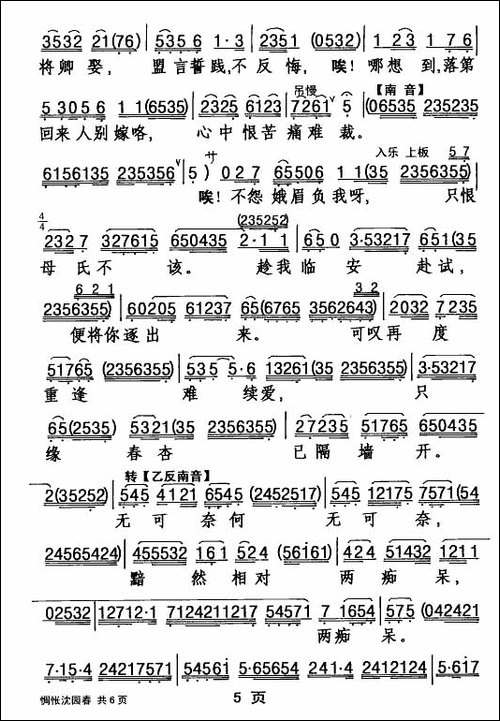 3532 21(76) 5356 1·3 2351 (0532) 1 2 3 1 7 6
将卿娶, 盟言誓践,不反悔, 唉!哪想到,落第
吊慢 【南音】
5 3056 1 1 (6535) 2325 6123 7261 5 (06535 235235
回来人别嫁咯, 心中恨苦痛难裁。
サ 入乐 上板 5 7
6156135 235356 5) 0 2 7 65506 1 1 (35 2356355)
唉!不怨娥眉负我呀, 只恨
4/4 (235252)
232 7 327615 650435 2·1 1 650 3·53217 651(35
母氏不该。 趁我临安赴试,
6 2 1 3 2
2356355) 60205 61237 65(6765 3562643) 2032 7 235
便将你逐出来。 可叹再度
51765 (2356355) 535 5·6 13261(35 2356355) 3·53217
重逢难续爱, 只
65(2535) 5321(35 2356355) 27235 51765 650435
缘春杏已隔墙开。
转【乙反南音】
2(35252) 545 4121 6545 (2452517) 545 12175 7571(54
无可奈何无可奈,
24565424) 455532 161 524 (56161) 424 51432 1211
黯然相对两痴呆,
02532 12712·1 7124211217 54571 7 1654 575 (042421
两痴呆。
7·15·4 24217571 54561 5·65654 241·241 2412124 5·617
惆怅沈园春 共6页 5 页